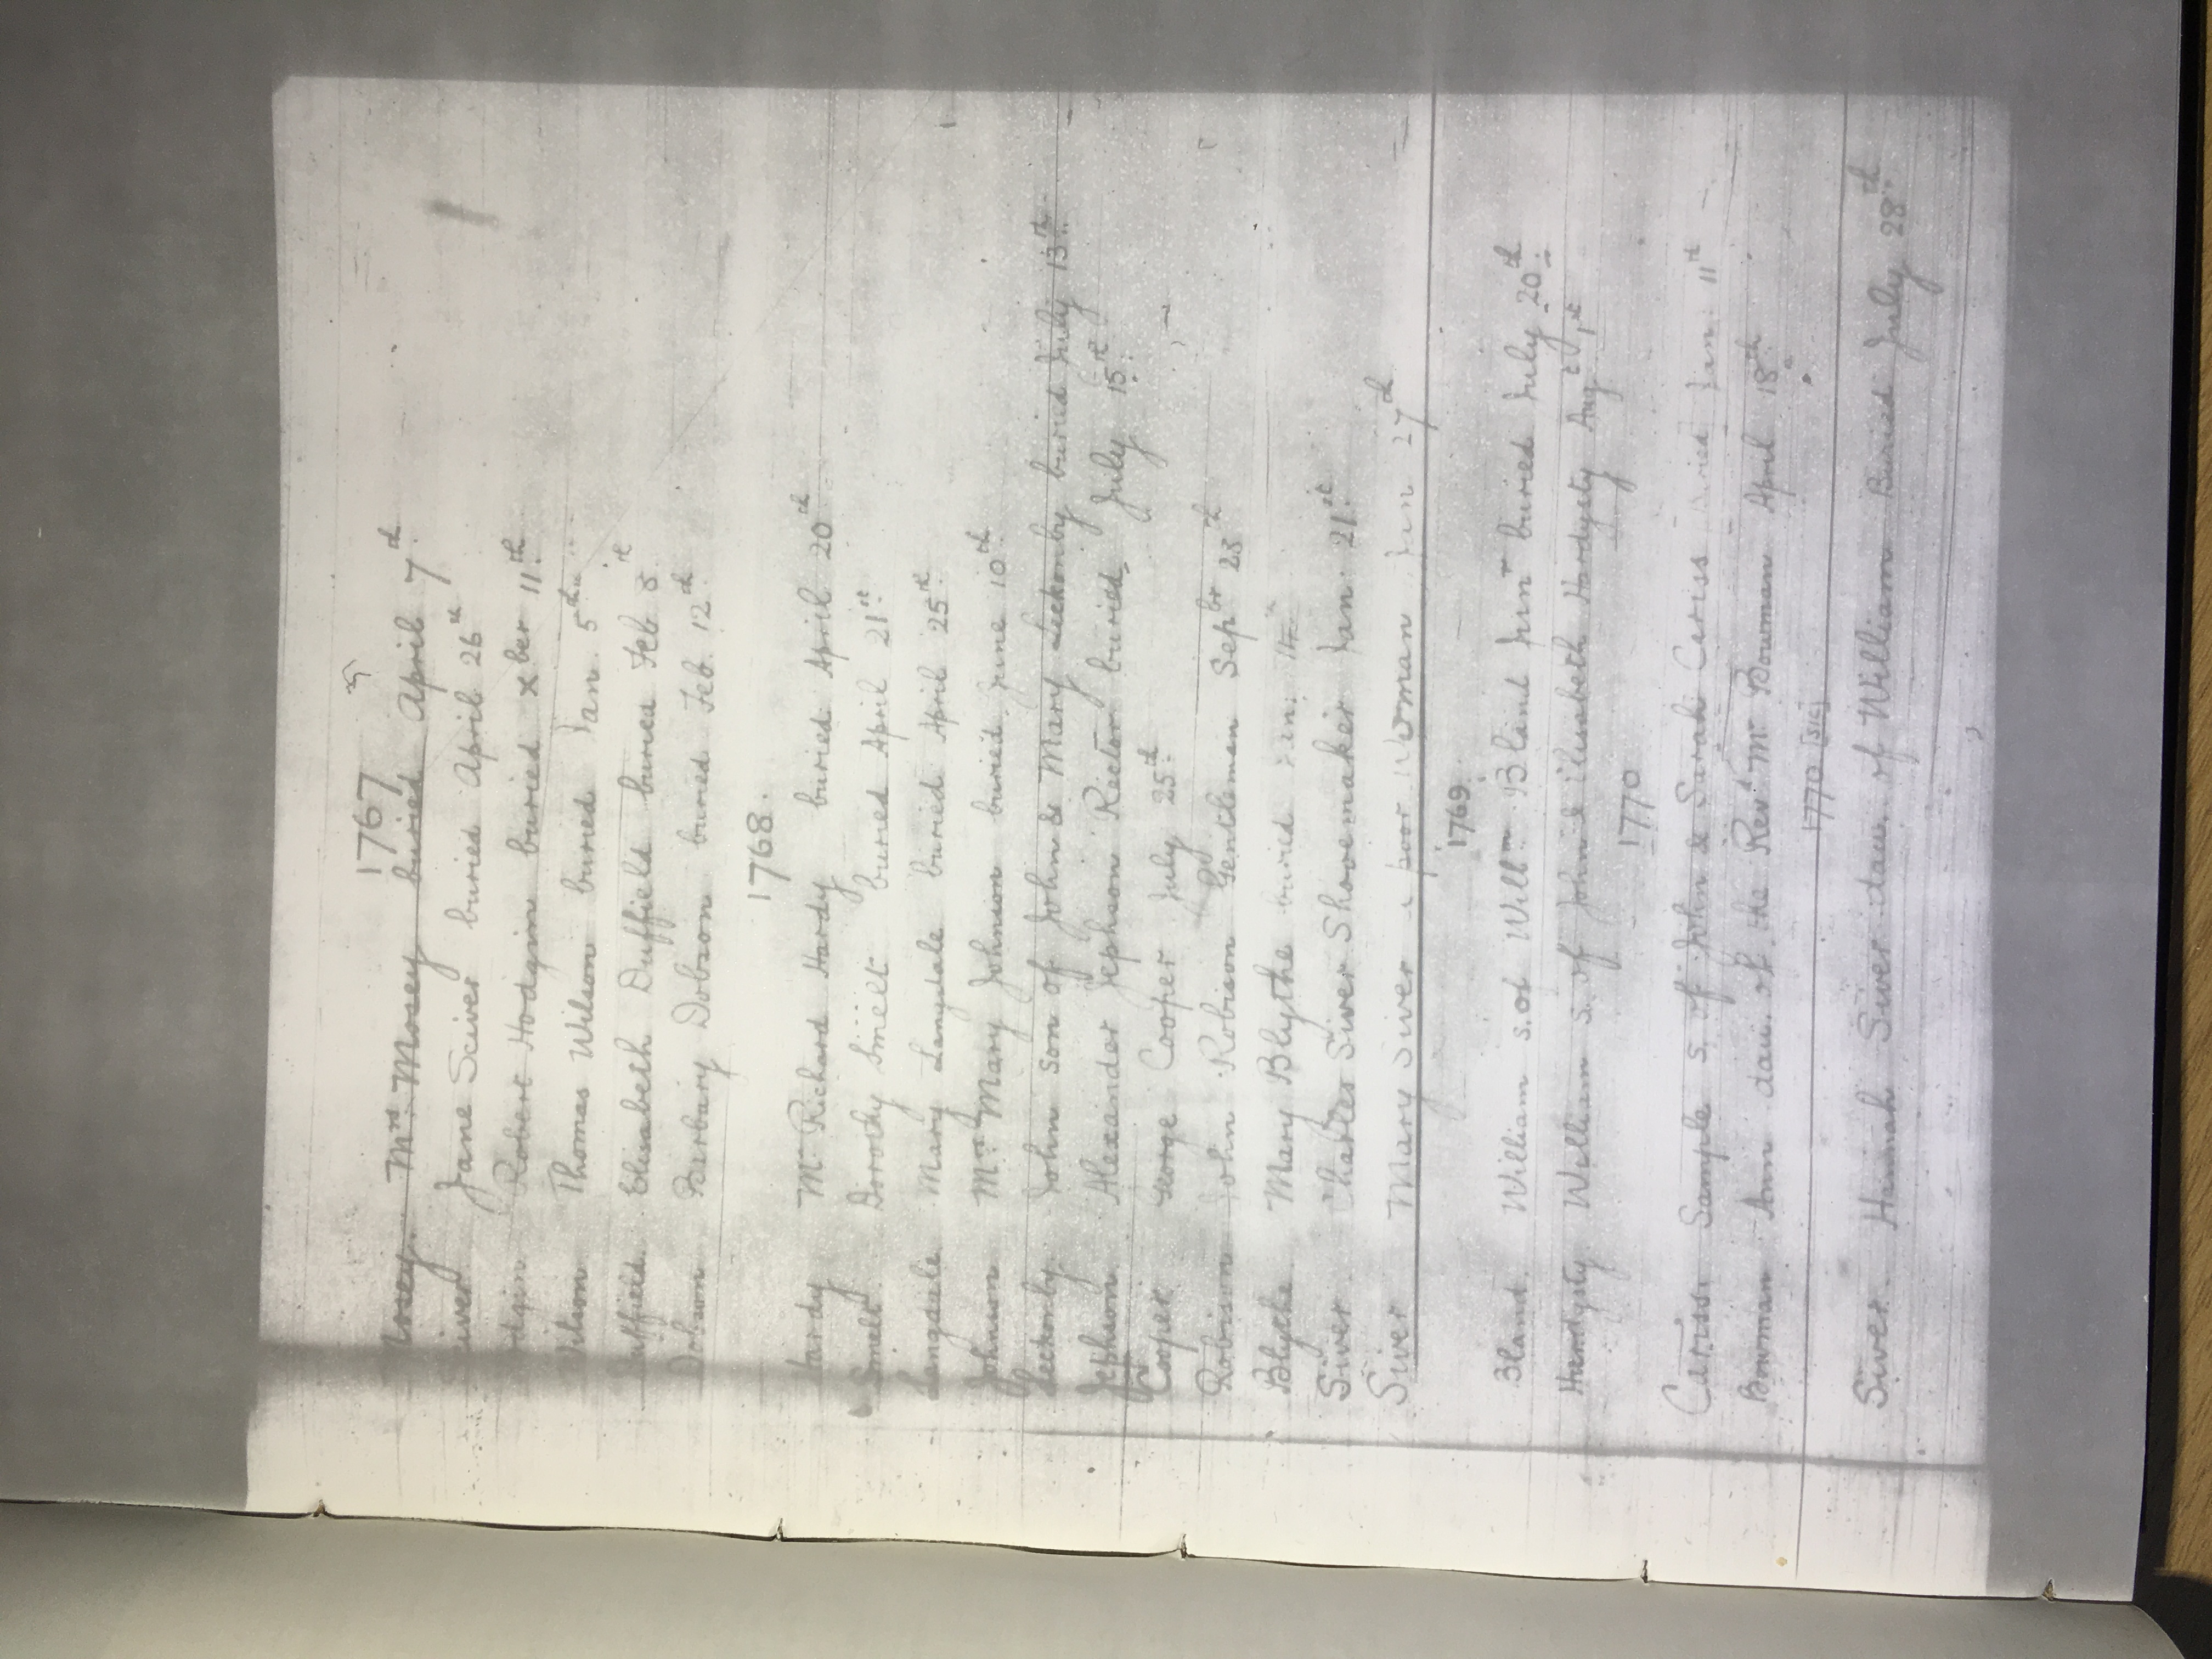 1767
Mosey. Mrs. Mosey buried April 7th.
Sciver Jane Sciver buried April 26th
Hodgin Robert Hodgin buried xber 11th.
Wilson Thomas Wilson buried Jan. 5th.
Duffield. Elisabeth Duffield buried Feb
Dobson Barbary Dobson buried Feb. 12th.
1768.
Hardy Mr. Richard Hardy buried April 20th
Smelt Dorothy Smelt buried April 21st.
Langdale Mary Langdale buried April 25th.
Johnson Mrs. Mary Johnson buried June 10th.
Leckonby. John son of John & Mary Leckonby buried July 13th.
Jephson. Alexander Jephson Rector buried, July 15th.
Cooper George Cooper July 25th
Robison John Robison Gentleman Sepbr 23th
Blythe Mary Blythe buried
Siver Charles Siver Shooemaker Jan. 21st.
Siver Mary Siver a poor Woman Jan 27th
1769.
Bland. William s. of Willm. Bland Junr buried July 20th.
Hardysty William s. of John & Elisabeth Hardysty Aug 1st
1770
Ceriss. Sample s. of John & Sarah Ceriss buried Jan. 11th
Bowman Ann dau. of the Revd Mr Bowman April 18th.
1770 [sic]
Siver. Hannah Siver dau. of William Buried July 28th.